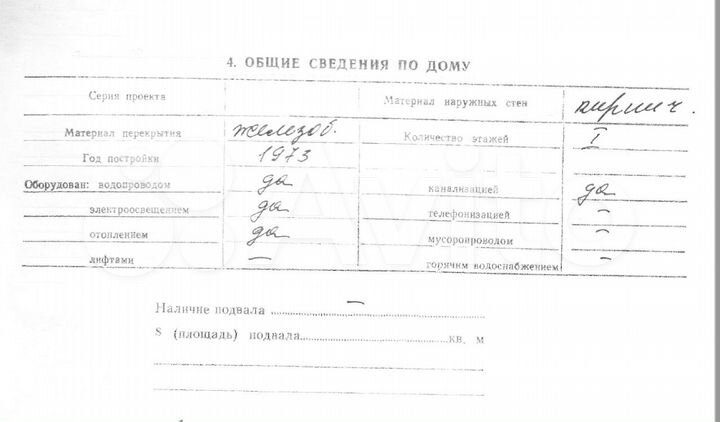 4. ОБЩИЕ СВЕДЕНИЯ ПО ДОМУ
Серия проекта Материал наружных стен кирпич.
Материал перекрытия железоб. Количество этажей I
Год постройки 1973
Оборудован: водопроводом да канализацией да
электроосвещением да телефонизацией –
отоплением да мусоропроводом –
лифтами – горячим водоснабжением –
Наличие подвала –
S (площадь) подвала кв. м
Avito